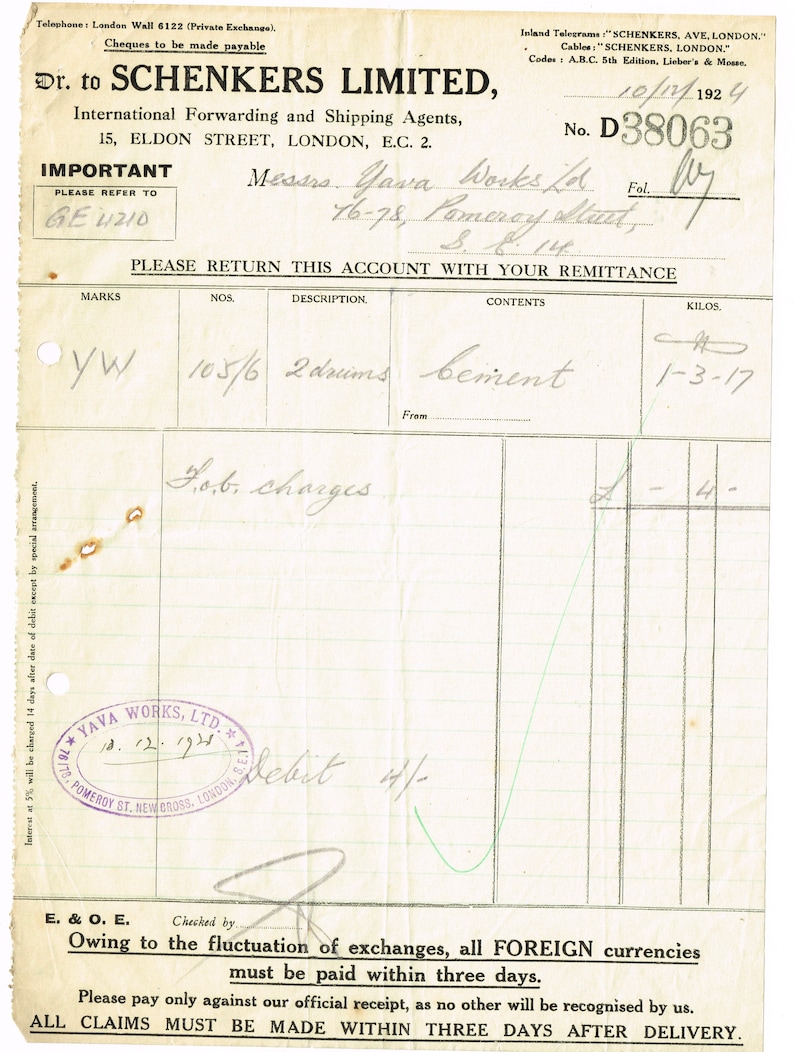 Telephone: London Wall 6122 (Private Exchange).
Cheques to be made payable
Inland Telegrams: "SCHENKERS, AVE, LONDON."
Cables: "SCHENKERS, LONDON."
Codes: A.B.C. 5th Edition, Lieber's & Mosse.
Dr. to SCHENKERS LIMITED,
International Forwarding and Shipping Agents,
15, ELDON STREET, LONDON, E.C. 2.
10/12/ 1924
No. D38063
IMPORTANT
PLEASE REFER TO
GE 4210
Messrs. Yava Works Ld
76-78, Pomeroy Street,
S. E. 14
Fol.
PLEASE RETURN THIS ACCOUNT WITH YOUR REMITTANCE
MARKS NOS. DESCRIPTION. CONTENTS KILOS.
YW 105/6 2 drums Cement 1-3-17
From
F.o.b. charges £ - 4 -
Interest at 5% will be charged 14 days after date of debit except by special arrangement.
★ YAVA WORKS, LTD. ★
10. 12. 192
76/78, POMEROY ST. NEW CROSS, LONDON, S.E.14
Debit 4/-
E. & O. E. Checked by
Owing to the fluctuation of exchanges, all FOREIGN currencies
must be paid within three days.
Please pay only against our official receipt, as no other will be recognised by us.
ALL CLAIMS MUST BE MADE WITHIN THREE DAYS AFTER DELIVERY.